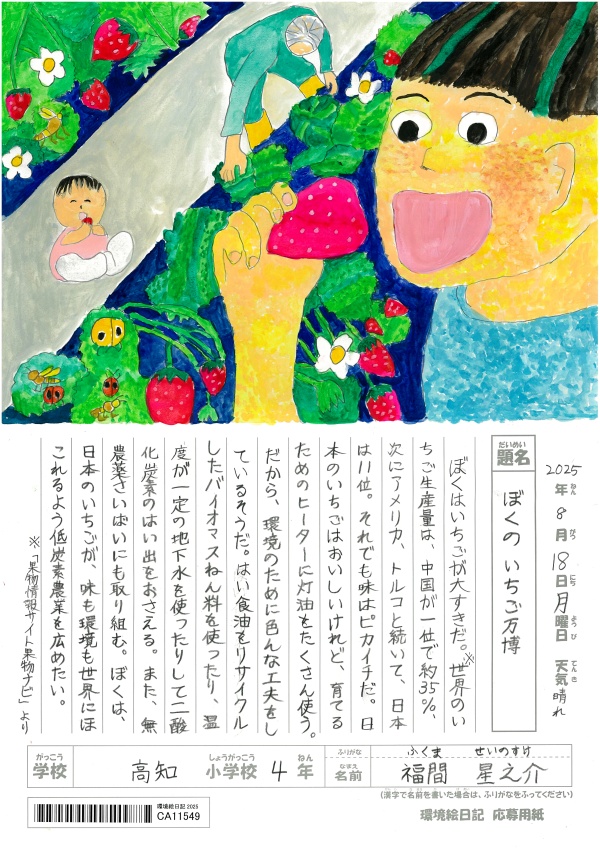 2025年8月18日月曜日 天気晴れ
ねん がつ にち ようび てんき
だいめい
題名
ぼくの いちご万博
ぼくはいちごが大すきだ。※世界のい
ちご生産量は、中国が一位で約35%、
次にアメリカ、トルコと続いて、日本
は11位。それでも味はピカイチだ。日
本のいちごはおいしいけれど、育てる
ためのヒーターに灯油をたくさん使う。
だから、環境のために色んな工夫をし
ているそうだ。はい食油をリサイクル
したバイオマスねん料を使ったり、温
度が一定の地下水を使ったりして二酸
化炭素のはい出をおさえる。また、無
農薬さいばいにも取り組む。ぼくは、
日本のいちごが、味も環境も世界にほ
これるよう低炭素農業を広めたい。
※「果物情報サイト果物ナビ」より
がっこう しょうがっこう ねん
学校 高知 小学校 4年
ふりがな ふくま せいのすけ
なまえ
名前 福間 星之介
(漢字で名前を書いた場合は、ふりがなをふってください)
環境絵日記 2025
CA11549
環境絵日記 応募用紙